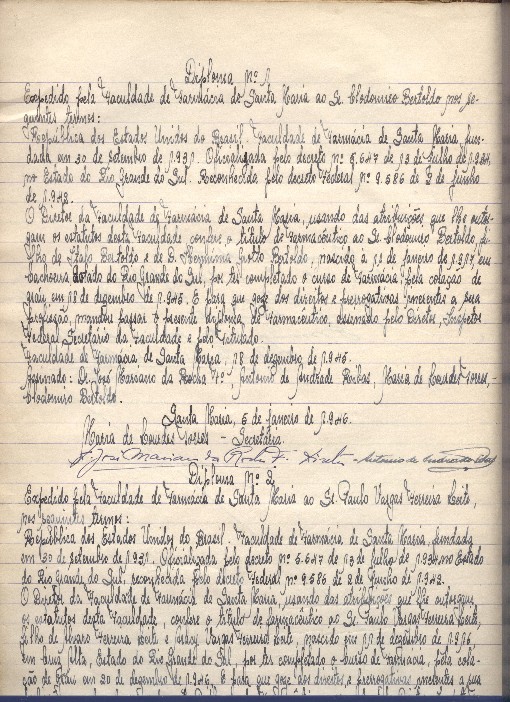 Diploma Nº 1
Expedido pela Faculdade de Farmácia de Santa Maria ao Sr. Clodomiro Bertoldo nos se-
guintes termos:
República dos Estados Unidos do Brasil. Faculdade de Farmácia de Santa Maria, fun-
dada em 30 de setembro de 1931. Oficializada pelo decreto nº 5.647 de 13 de julho de 1934
no Estado do Rio Grande do Sul. Reconhecida pelo decreto Federal nº 9.586 de 2 de junho
de 1942.
O Diretor da Faculdade de Farmácia de Santa Maria, usando das atribuições que lhe outor-
gam os estatutos desta Faculdade confere o título de Farmacêutico ao Sr. Clodomiro Bertoldo, fi-
lho de Bertoldo e de D. Bertoldo, nascido à de janeiro de 1917 em
Cachoeira Estado do Rio Grande do Sul, por ter completado o curso de Farmácia, pela colação de
gráu em 18 de dezembro de 1945. E para que goze dos direitos e prerrogativas inerentes a sua
profissão, mandou passar o presente diploma de Farmacêutico, assinado pelo Diretor, Inspetor
Federal Secretário da Faculdade e pelo titulado.
Faculdade de Farmácia de Santa Maria, 18 de dezembro de 1945.
Assinado: Dr. José Mariano da Rocha Fº, Antonio de Andrade Ribas, Maria de Lourdes Torres,
Clodomiro Bertoldo.
Santa Maria, 5 de janeiro de 1946.
Maria de Lourdes Torres - Secretária.
Dr. José Mariano da Rocha Fº Diretor - Antonio de Andrade Ribas
Diploma Nº 2
Expedido pela Faculdade de Farmácia de Santa Maria ao Sr. Paulo Vargas Ferreira Leite,
nos seguintes termos:
República dos Estados Unidos do Brasil. Faculdade de Farmácia de Santa Maria, fundada
em 30 de setembro de 1931. Oficializada pelo decreto nº 5.647 de 13 de julho de 1934 no Estado
do Rio Grande do Sul, reconhecida pelo decreto Federal nº 9586 de 2 de junho de 1942.
O Diretor da Faculdade de Farmácia de Santa Maria, usando das atribuições que lhe outorgam
os estatutos desta Faculdade, confere o título de farmacêutico ao Sr. Paulo Vargas Ferreira Leite,
filho de Alvaro Ferreira Leite e Vargas Ferreira Leite, nascido em de dezembro de
em Cruz Alta, Estado do Rio Grande do Sul, por ter completado o curso de Farmácia, pela cola-
ção de gráu em 20 de dezembro de 1946. E para que goze dos direitos e prerrogativas inerentes a sua